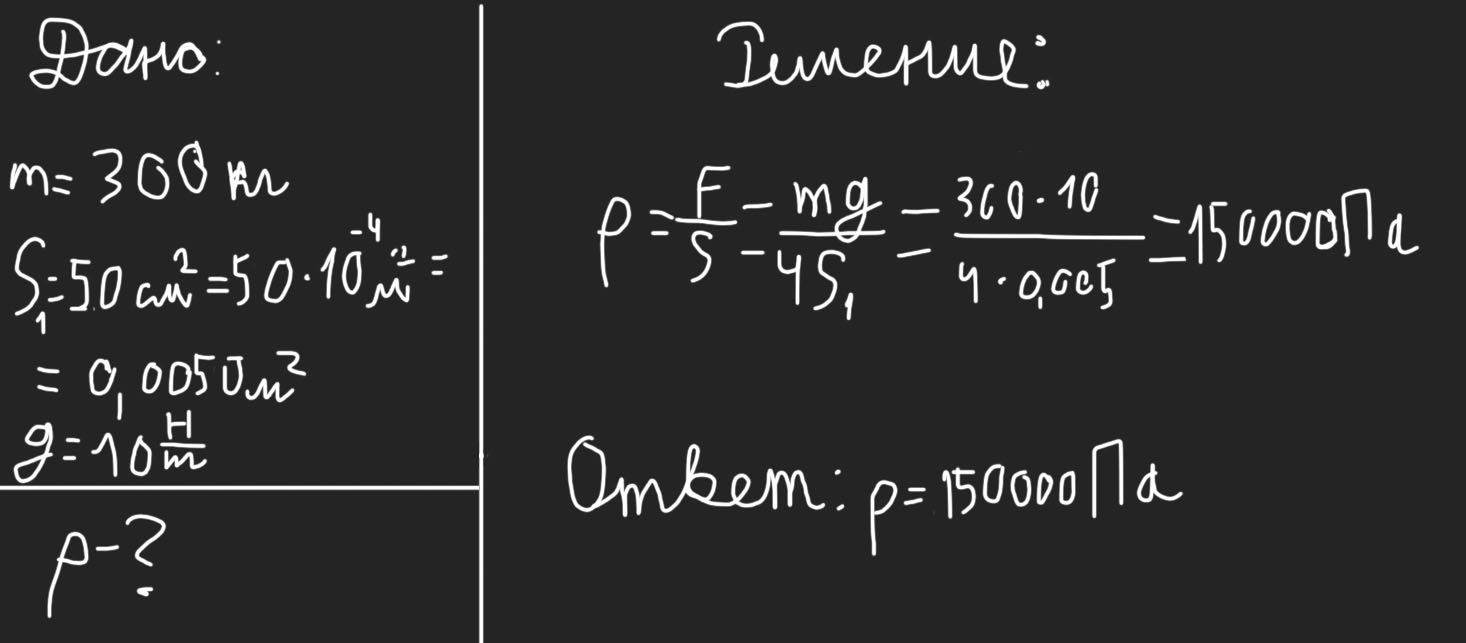 Дано:
m = 300 кг
S₁ = 50 см² = 50 · 10⁻⁴ м² =
= 0,0050 м²
g = 10 Н/m
p - ?
Решение:
p = F/S = mg/4S₁ = 300 · 10/4 · 0,005 = 150000 Па
Ответ: p = 150000 Па